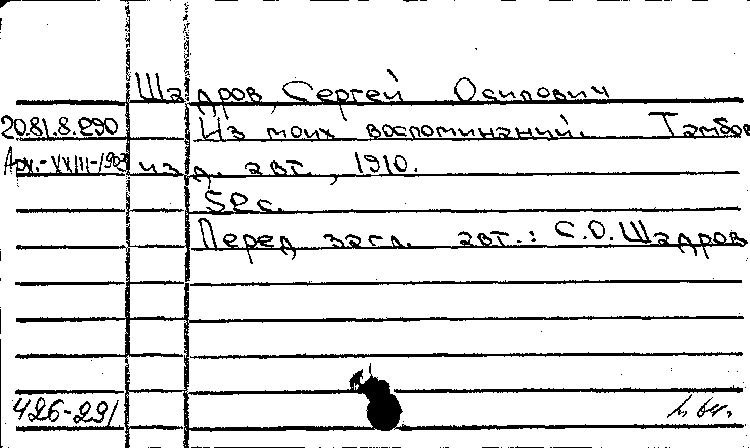 Шадров, Сергей Осипович
20.81.8.290 Из моих воспоминаний. Тамбов
Арх.-XVIII-1903 изд. авт., 1910.
52с.
Перед загл. авт.: С.О. Шадров
426-291